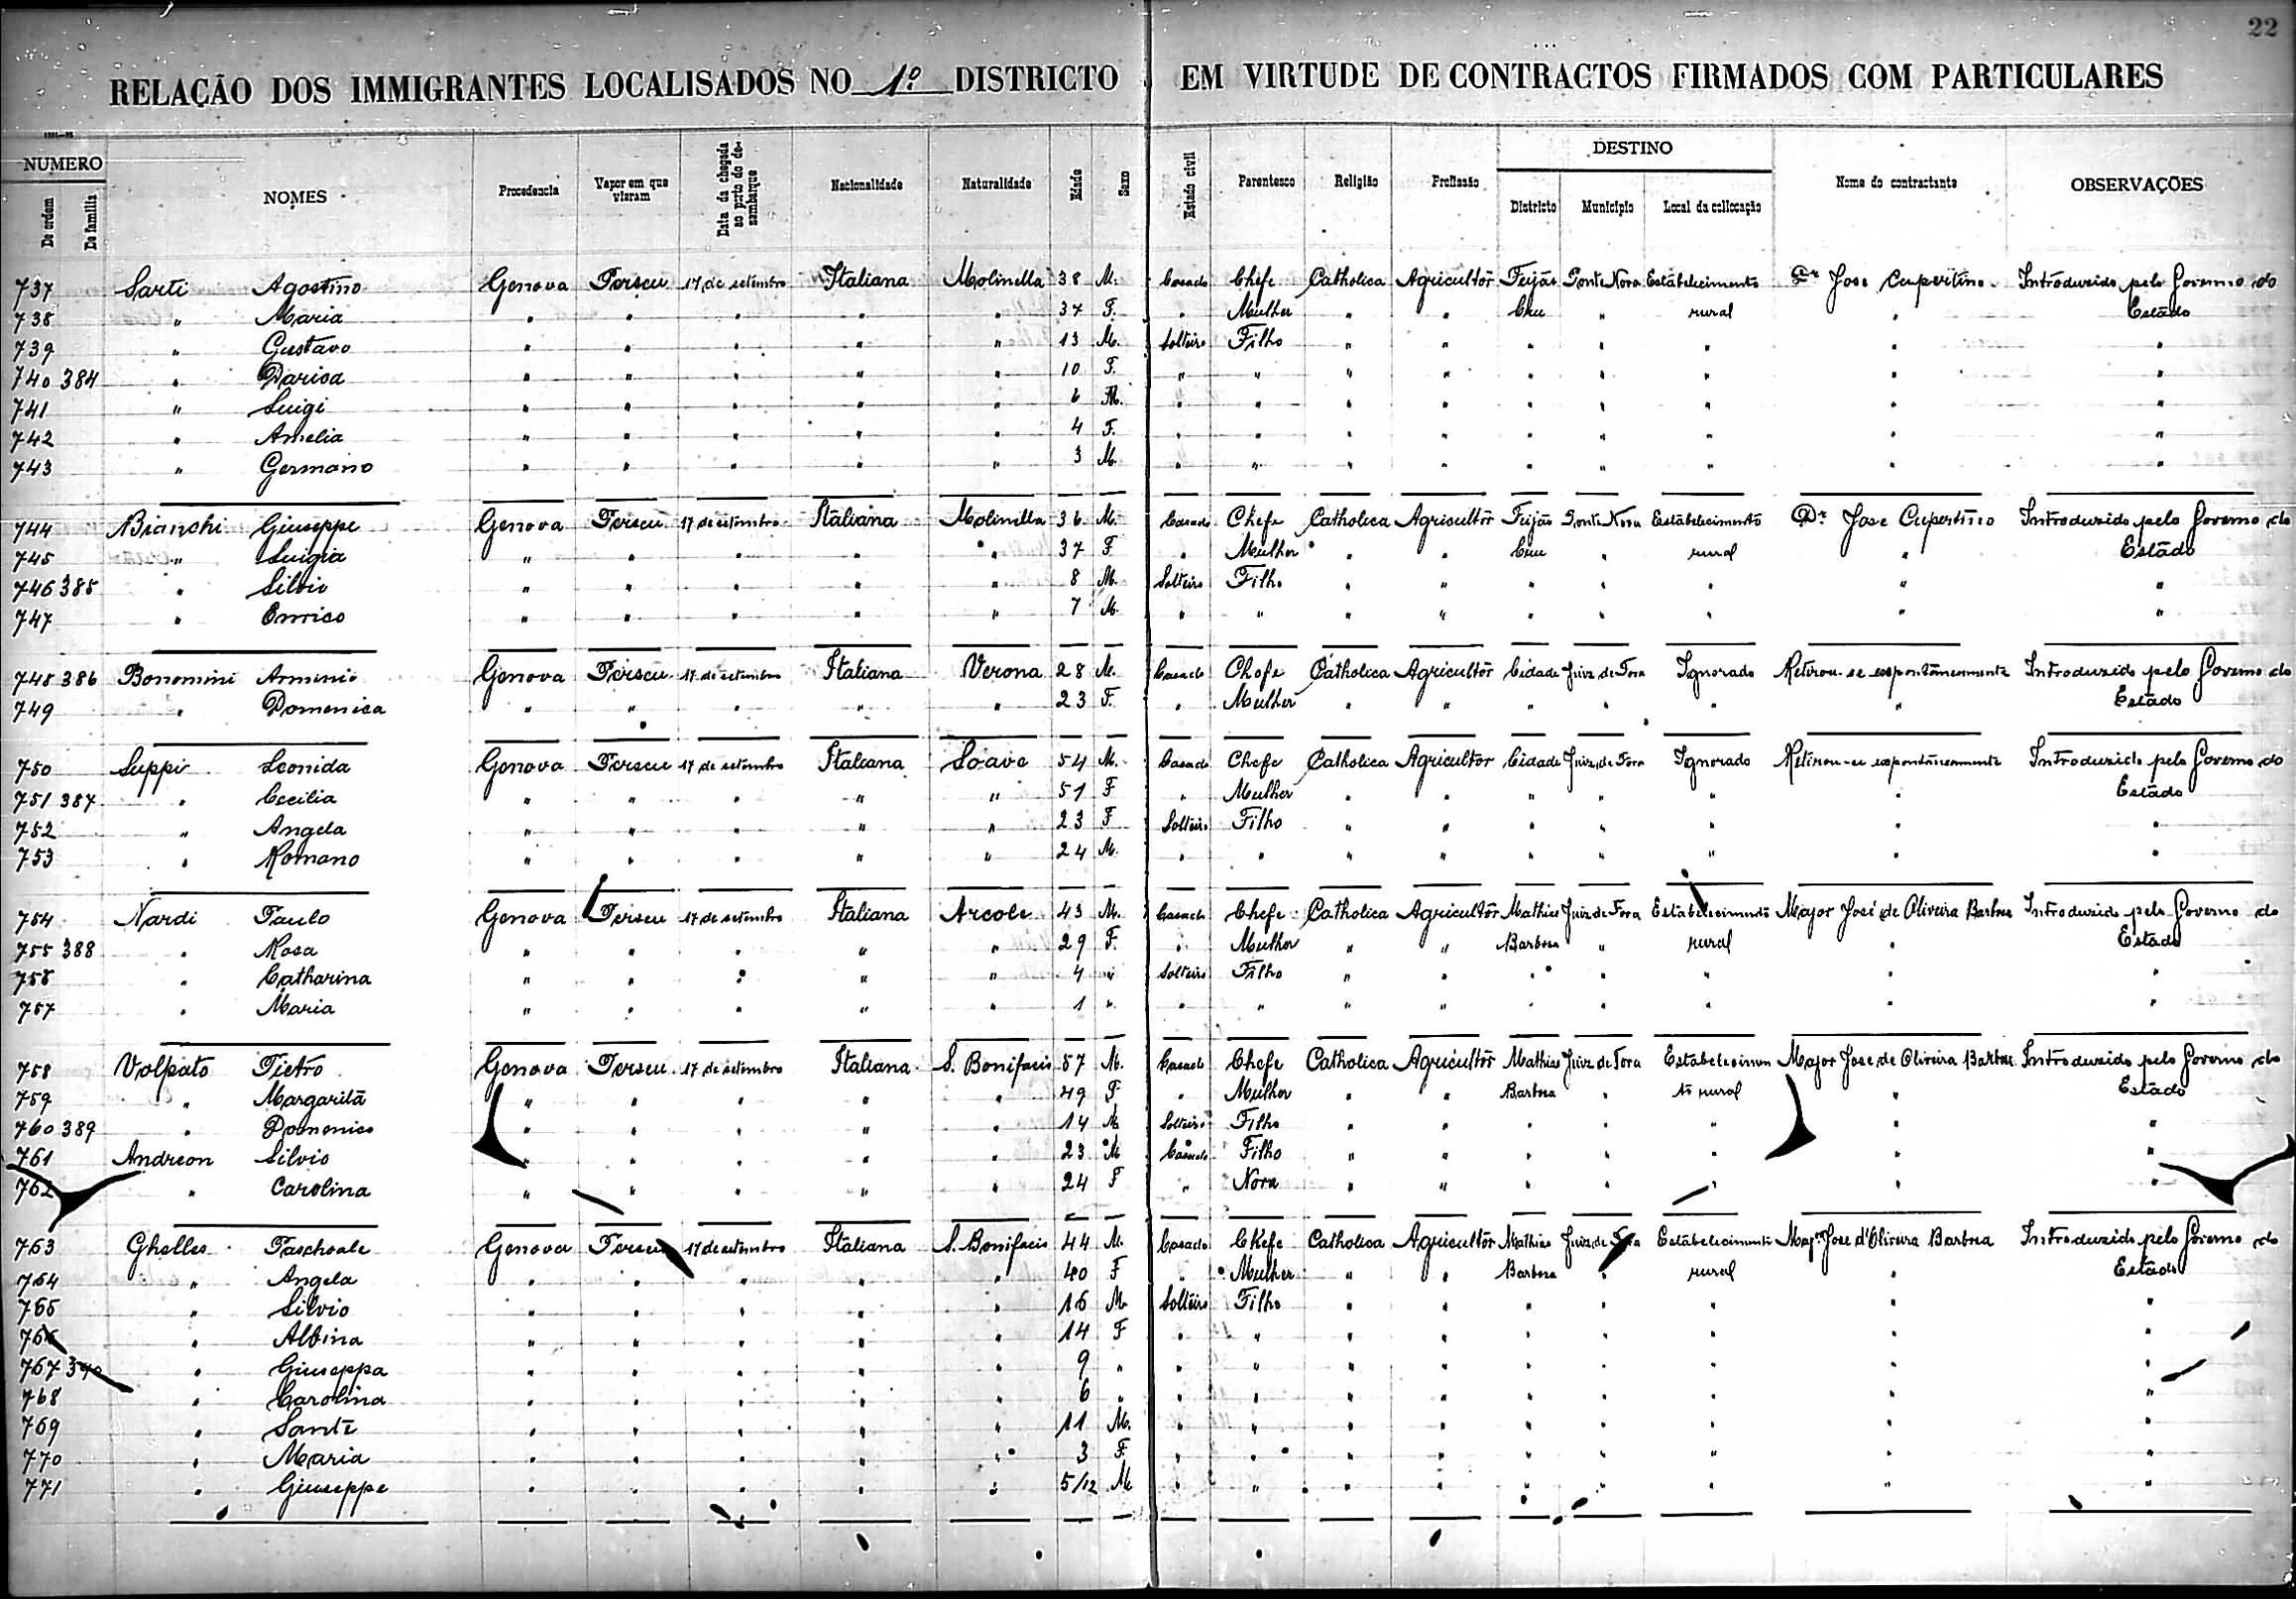 22
RELAÇÃO DOS IMMIGRANTES LOCALISADOS NO 1º DISTRICTO EM VIRTUDE DE CONTRACTOS FIRMADOS COM PARTICULARES
NUMERO
De ordem De familia NOMES Procedencia Vapor em que vieram Data da chegada ao porto do desembarque Nacionalidade Naturalidade Edade Sexo Estado civil Parentesco Religião Profissão DESTINO Districto Municipio Local da collocação Nome do contractante OBSERVAÇÕES
737 Sarti Agostino Genova Perseu 17 de setembro Italiana Molinella 38 M. Casado Chefe Catholica Agricultôr Feijão Ponte Nova Estabelecimento Dr Jose Cupertino Introdusido pelo Governo do
738 " Maria " " " " " 37 F. " Mulher " " Cru " rural " Estado
739 " Gustavo " " " " " 13 M. Solteiro Filho " " " " " " "
740 384 " " " " " " 10 F. " " " " " " " " "
741 " Luigi " " " " " 6 M. " " " " " " " " "
742 " Amelia " " " " " 4 F. " " " " " " " " "
743 " Germano " " " " " 3 M. " " " " " " " " "
744 Bianchi Giuseppe Genova Perseu 17 de setembro Italiana Molinella 36 M. Casado Chefe Catholica Agricultôr Feijão Ponte Nova Estabelecimento Dr Jose Cupertino Introdusido pelo Governo do
745 " Luigia " " " " " 37 F " Mulher " " Cru " rural " Estado
746 385 " Silvio " " " " " 8 M. Solteiro Filho " " " " " " "
747 " Enrico " " " " " 7 M. " " " " " " " " "
748 386 Bonomini Arminio Genova Perseu 17 de setembro Italiana Verona 28 M. Casado Chefe Catholica Agricultôr Cidade Juiz de Fora Ignorado Retirou-se espontâneamente Introdusido pelo Governo do
749 " Domenica " " " " " 23 F. " Mulher " " " " " " Estado
750 Suppi Leonida Genova Perseu 17 de setembro Italiana Soave 54 M. Casado Chefe Catholica Agricultor Cidade Juiz de Fora Ignorado Retirou-se espontâneamente Introdusido pelo Governo do
751 387 " Cecilia " " " " " 51 F " Mulher " " " " " " Estado
752 " Angela " " " " " 23 F Solteiro Filho " " " " " " "
753 " Romano " " " " " 24 M. " " " " " " " " "
754 Nardi Paulo Genova Perseu 17 de setembro Italiana Arcole 43 M. Casado Chefe Catholica Agricultôr Mathias Juiz de Fora Estabelecimento Major José de Oliveira Barbosa Introdusido pelo Governo do
755 388 " Rosa " " " " " 29 F. " Mulher " " Barbosa " rural " Estado
756 " Catharina " " " " " 4 " Solteiro Filho " " " " " " "
757 " Maria " " " " " 1 " " " " " " " " " "
758 Volpato Pietro Genova Perseu 17 de setembro Italiana S. Bonifacio 57 M. Casado Chefe Catholica Agricultôr Mathias Juiz de Fora Estabelecimen Major Jose de Oliveira Barbosa Introdusido pelo Governo do
759 " Margarita " " " " " 49 F " Mulher " " Barbosa " to rural " Estado
760 389 " Domenico " " " " " 14 M Solteiro Filho " " " " " " "
761 Andreon Silvio " " " " " 23 M Casado Filho " " " " " " "
762 " Carolina " " " " " 24 F " Nora " " " " " " "
763 Ghelles Paschoale Genova Perseu 17 de setembro Italiana S. Bonifacio 44 M. Casado Chefe Catholica Agricultôr Mathias Juiz de Fora Estabelecimento Majr Jose d'Oliveira Barbosa Introdusido pelo Governo do
764 " Angela " " " " " 40 F " Mulher " " Barbosa " rural " Estado
765 " Silvio " " " " " 16 M Solteiro Filho " " " " " " "
766 " Albina " " " " " 14 F " " " " " " " " "
767 390 " Giuseppa " " " " " 9 " " " " " " " " " "
768 " Carolina " " " " " 6 " " " " " " " " " "
769 " Sante " " " " " 11 M. " " " " " " " " "
770 " Maria " " " " " 3 F. " " " " " " " " "
771 " Giuseppe " " " " " 5/12 M " " " " " " " " "